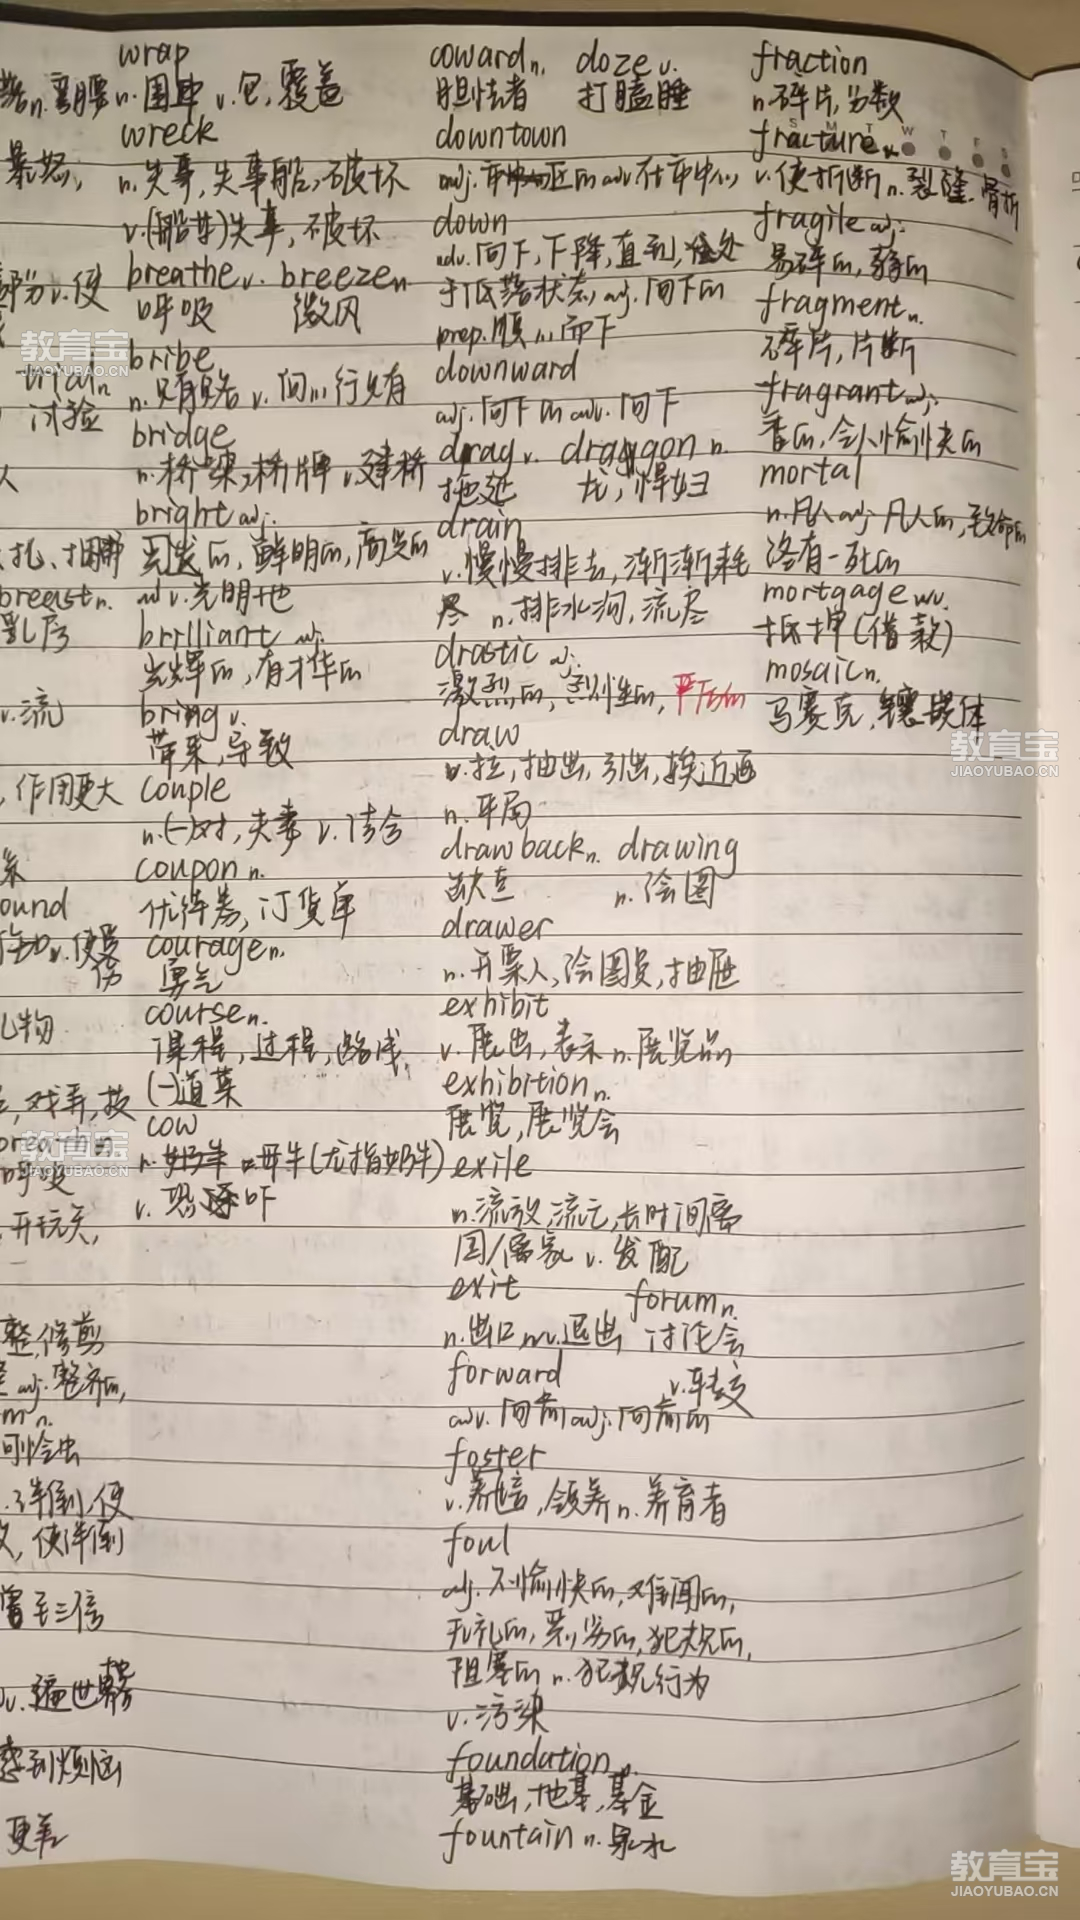 wrap
n.围巾 v.包,覆盖
wreck
n.失事,失事船,破坏
v.(船等)失事,破坏
breathe v. breeze n.
呼吸 微风
bribe
n.贿赂 v.向…行贿
bridge
n.桥梁,桥牌 v.建桥
bright adj.
明亮的,鲜明的,高兴的
adv.光明地
brilliant adj.
光辉的,有才华的
bring v.
带来,导致
couple
n.(一)对,夫妻 v.结合
coupon n.
优待券,订货单
courage n.
勇气
course n.
课程,过程,路线,
(一)道菜
cow
n.母牛(尤指奶牛)
v.恐吓
暴怒,
部分 v.使
trial n.
试验
人
扎、抽
breast n.
乳房
v.流
,作用更大
系
ound
v.使受
伤
礼物
,戏弄,
breath n.
呼吸
开玩笑,
整,修剪
adj.整齐的,
n.
v.遍世界
感到烦恼
更差
coward n. doze v.
胆怯者 打瞌睡
downtown
adj.市中心区的 adv.在市中心
down
adv.向下,下降,直到,处
于低落状态, adj.向下的
prep.顺…而下
downward
adj.向下的 adv.向下
drag v. draggon n.
拖延 龙,悍妇
drain
v.慢慢排去,渐渐耗
尽 n.排水沟,流尽
drastic adj.
激烈的,烈性的,严厉的
draw
v.拉,抽出,引出,挨近画
n.平局
drawback n. drawing
缺点 n.绘图
drawer
n.开票人,绘图员,抽屉
exhibit
v.展出,表示 n.展览品
exhibition n.
展览,展览会
exile
n.流放,流亡,长时间离
国/离家 v.发配
exit forum n.
n.出口 v.退出 讨论会
forward v.转交
adv.向前 adj.向前的
foster
v.养培,领养 n.养育者
foul
adj.不愉快的,难闻的,
无礼的,恶劣的,犯规的,
阻塞的 n.犯规行为
v.污染
foundation n.
基础,地基,基金
fountain n.泉水
fraction
n.碎片,分数
fracture
v.使折断 n.裂缝,骨折
fragile adj.
易碎的,弱的
fragment n.
碎片,片断
fragrant adj.
香的,令人愉快的
mortal
n.凡人 adj.凡人的,致命的
终有一死的
mortgage nv.
抵押(借款)
mosaic n.
马赛克,镶嵌体
S M T W T F S
教育宝
JIAOYUBAO.CN
教育宝
JIAOYUBAO.CN
教育宝
JIAOYUBAO.CN
教育宝
JIAOYUBAO.CN